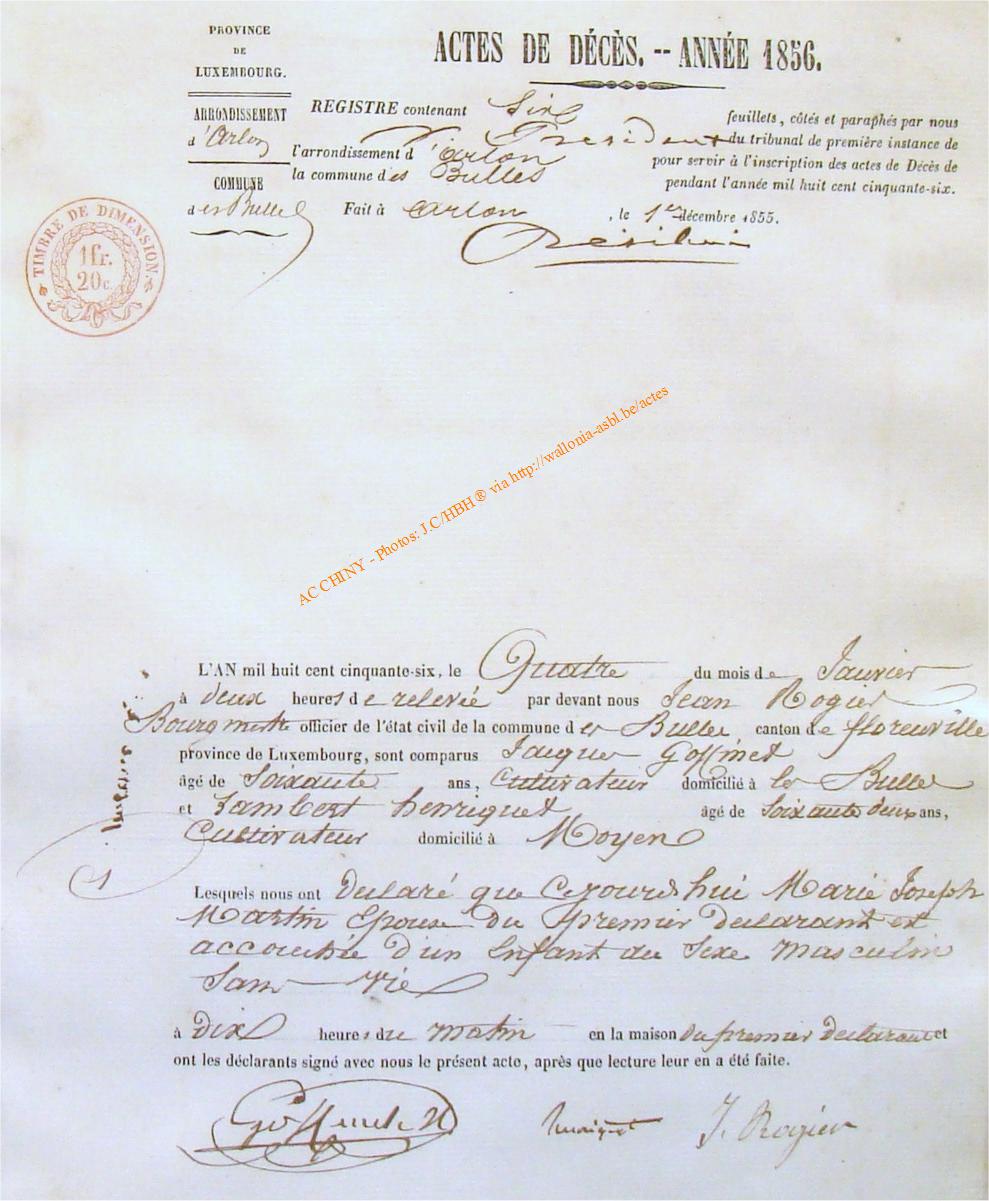 PROVINCE
DE
LUXEMBOURG.
ARRONDISSEMENT
d'Arlon
COMMUNE
des Bulles
TIMBRE DE DIMENSION.
1 fr.
20 c.
ACTES DE DÉCÈS. -- ANNÉE 1856.
REGISTRE contenant Six feuillets, côtés et paraphés par nous
Président du tribunal de première instance de
l'arrondissement d'arlon pour servir à l'inscription des actes de Décès de
la commune des Bulles pendant l'année mil huit cent cinquante-six.
Fait à arlon, le 1er décembre 1855.
ACCHINY - Photos: J.C/HBH ® via http://wallonia-asbl.be/actes
L'AN mil huit cent cinquante-six, le Quatre du mois de Janvier
à deux heures de relevée par devant nous Jean Rogier
Bourgmestre officier de l'état civil de la commune des Bulles, canton de florenville
province de Luxembourg, sont comparus Jacques Goffinet
âgé de Soixante ans, Cultivateur domicilié à les Bulles
et Lambert henriquet âgé de Soixante deux ans,
Cultivateur domicilié à Moyen
1
Lesquels nous ont Declaré que Cejourdhui Marie Joseph
Martin Epouse du premier Declarant est
accouchée d'un Enfant du Sexe Masculin
Sans vie
à Dix heures du matin en la maison du premier Declarant et
ont les déclarants signé avec nous le présent acte, après que lecture leur en a été faite.
J. Rogier